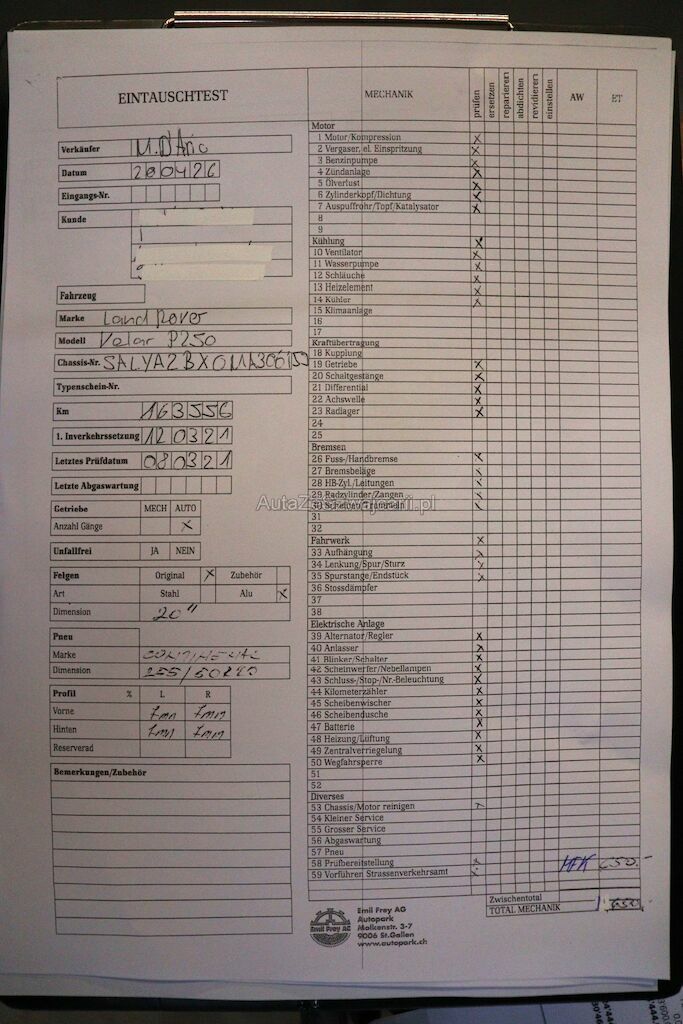 EINTAUSCHTEST
Verkäufer M. D'Ario
Datum 280426
Eingangs-Nr.
Kunde
Fahrzeug
Marke Land Rover
Modell Velar P250
Chassis-Nr.
Typenschein-Nr.
Km 163556
1. Inverkehrssetzung 120321
Letztes Prüfdatum 080321
Letzte Abgaswartung
Getriebe MECH AUTO
Anzahl Gänge X
Unfallfrei JA NEIN
Felgen Original X Zubehör
Art Stahl Alu X
Dimension 20"
Pneu
Marke CONTINENTAL
Dimension
Profil % L R
Vorne 7mm 7mm
Hinten 7mm 7mm
Reserverad
Bemerkungen/Zubehör
MECHANIK prüfen ersetzen reparieren abdichten revidieren einstellen AW ET
Motor
1 Motor/Kompression X
2 Vergaser, el. Einspritzung X
3 Benzinpumpe X
4 Zündanlage X
5 Ölverlust X
6 Zylinderkopf/Dichtung X
7 Auspuffrohr/Topf/Katalysator X
8
9
Kühlung X
10 Ventilator X
11 Wasserpumpe X
12 Schläuche X
13 Heizelement X
14 Kühler X
15 Klimaanlage
16
17
Kraftübertragung
18 Kupplung
19 Getriebe X
20 Schaltgestänge X
21 Differential X
22 Achswelle X
23 Radlager X
24
25
Bremsen
26 Fuss-/Handbremse X
27 Bremsbeläge X
28 HB-Zyl./Leitungen X
29 Radzylinder/Zangen X
30 Scheiben/Trommeln X
31
32
Fahrwerk X
33 Aufhängung X
34 Lenkung/Spur/Sturz X
35 Spurstange/Endstück X
36 Stossdämpfer
37
38
Elektrische Anlage
39 Alternator/Regler X
40 Anlasser X
41 Blinker/Schalter X
42 Scheinwerfer/Nebellampen X
43 Schluss-/Stop-/Nr.-Beleuchtung X
44 Kilometerzähler X
45 Scheibenwischer X
46 Scheibendusche X
47 Batterie X
48 Heizung/Lüftung X
49 Zentralverriegelung X
50 Wegfahrsperre X
51
52
Diverses
53 Chassis/Motor reinigen
54 Kleiner Service
55 Grosser Service
56 Abgaswartung
57 Pneu
58 Prüfbereitstellung X MFK 650.-
59 Vorführen Strassenverkehrsamt
Zwischentotal
TOTAL MECHANIK 650.-
Emil Frey AG
Emil Frey AG
Autopark
Molkenstr. 3-7
9006 St.Gallen
www.autopark.ch